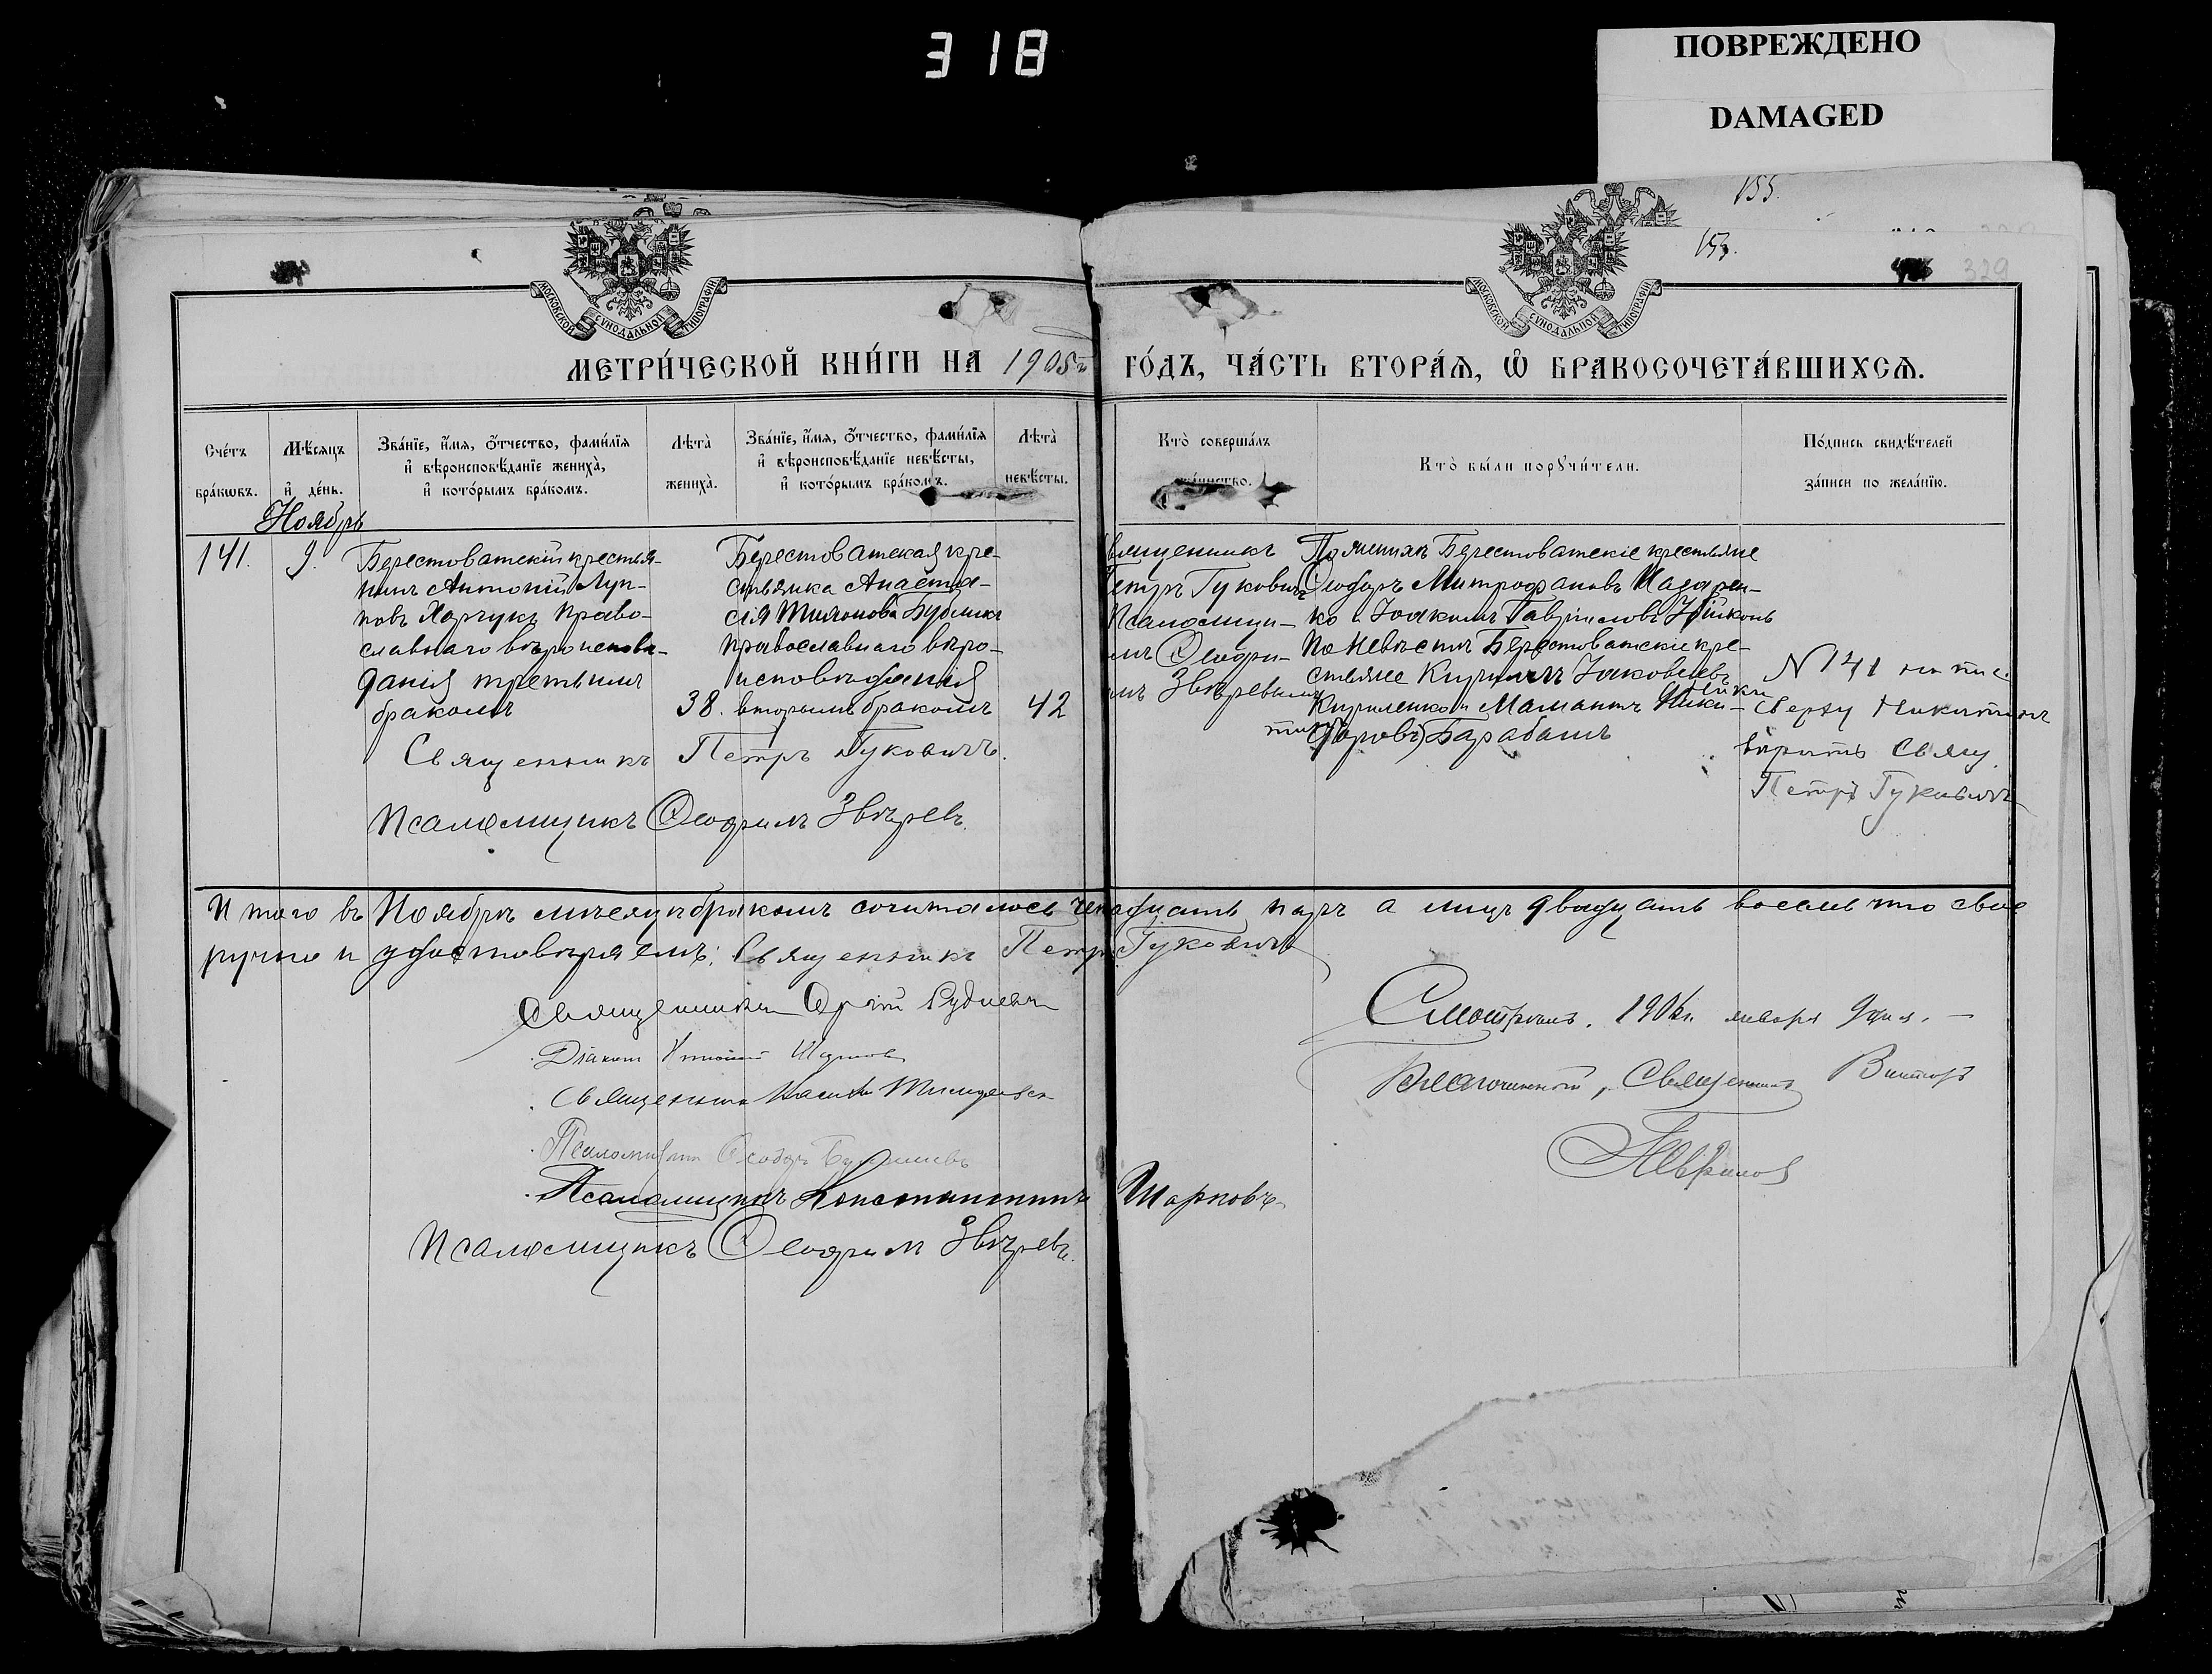 318
ПОВРЕЖДЕНО
DAMAGED
155.
153.
329
МОСКОВСКОЙ СѴНОДАЛЬНОЙ ТИПОГРАФІИ
МОСКОВСКОЙ СѴНОДАЛЬНОЙ ТИПОГРАФІИ
МЕТРИ́ЧЕСКОЙ КНИ́ГИ НА 1905й ГО́ДЪ, ЧА́СТЬ ВТОРА́Ѧ, Ѽ БРАКОСОЧЕТА́ВШИХСѦ.
Сче́тъ бра́кѡвъ.
Мѣ́сяцъ и҆ де́нь.
Зва́нїе, и҆́мя, ѻ҆́тчество, фами́лїя и҆ вѣроисповѣ́данїе жениха̀, и҆ кото́рымъ бра́комъ.
Лѣта̀ жениха̀.
Зва́нїе, и҆́мя, ѻ҆́тчество, фами́лїя и҆ вѣроисповѣ́данїе невѣ́сты, и҆ кото́рымъ бра́комъ.
Лѣта̀ невѣ́сты.
Кто̀ соверша́лъ та́инство.
Кто̀ бы́ли порꙋчи́тели.
По́дпись свидѣ́телей за́писи по жела́нїю.
Ноябрь
141.
9.
Берестоватскій крестья-
нинъ Антоній Луп-
повъ Харчукъ право-
славнаго вѣроиспов-
данія третьимъ
бракомъ
38.
Берестоватская кре-
стьянка Анаста-
сія Тихонова Бублик
православнаго вѣро-
исповѣданія
вторымъ бракомъ
42
Священникъ
Петръ Гуковичъ
Псаломщи-
мъ Феофи-
мъ Звѣревымъ
По женихѣ Берестоватскіе крестьяне
Феодоръ Митрофановъ Назарен-
ко и Іоакимъ Гавріиловъ
По невѣстѣ Берестоватскіе кре-
стьяне Кириллъ Іаковлевъ
Кириленко и Мамантъ Ники-
Барабашъ
№ 141
сверху Никитинъ
вѣрить Свящ.
Петръ Гуковичъ
Священникъ Петръ Гуковичъ.
Псаломщикъ Феофилъ Звѣревъ.
Итого въ Ноябрѣ мѣсяцѣ бракомъ сочиталось четырнадцать паръ а лицъ двадцать восемь что свое
ручно и удостовѣряемъ: Священникъ Петръ Гуковичъ
Священникъ Рудневъ
Діаконъ
Священникъ Василій
Псаломщикъ Феодоръ
Псаломщикъ Константинъ Шарковъ.
Псаломщикъ Феофилъ Звѣревъ.
Смотрѣлъ. 1906 г. января 9 дня. —
Благочинный, Священникъ Викторъ